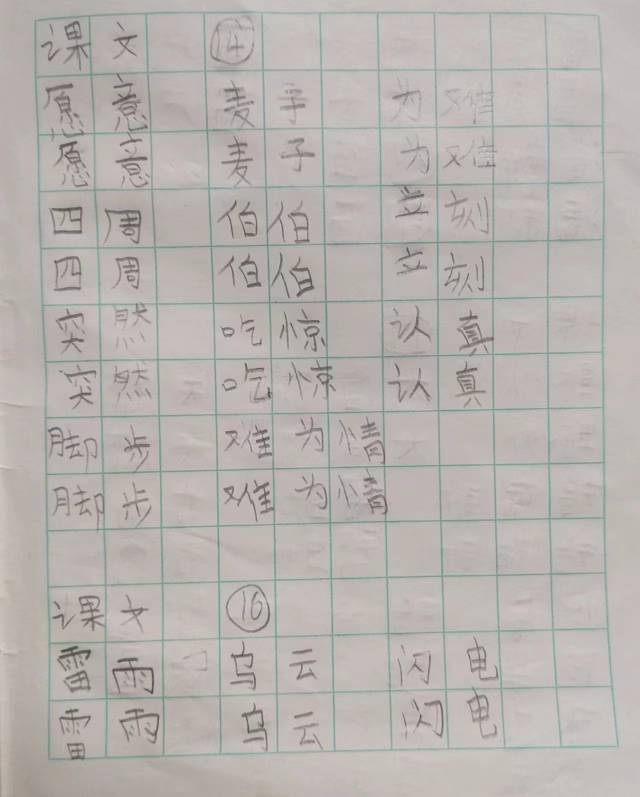 课文 ⑭
愿意 麦子 为难
愿意 麦子 为难
四周 伯伯 立刻
四周 伯伯 立刻
突然 吃惊 认真
突然 吃惊 认真
脚步 难为情
脚步 难为情
课文 ⑯
雷雨 乌云 闪电
雷雨 乌云 闪电